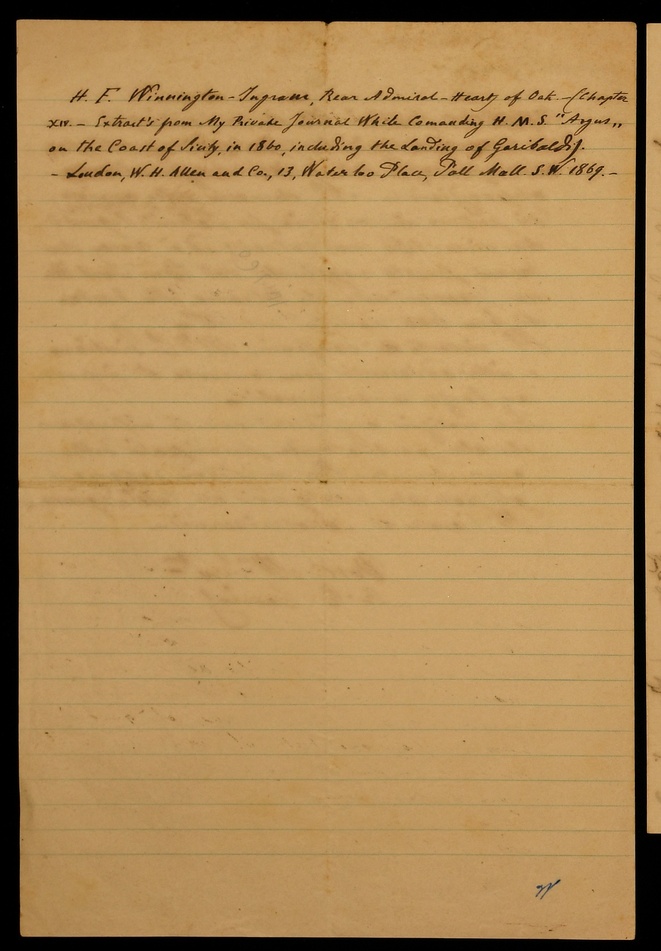 H. F. Winnington-Ingram, Rear Admiral - Hearts of Oak - (Chapter
XIV. - Extract's from My Private Journal While Comanding H. M. S. "Argus„
on the Coast of Sicily, in 1860, including the Landing of Garibaldi).
- London, W. H. Allen and Co., 13, Waterloo Place, Pall Mall. S. W. 1869. -